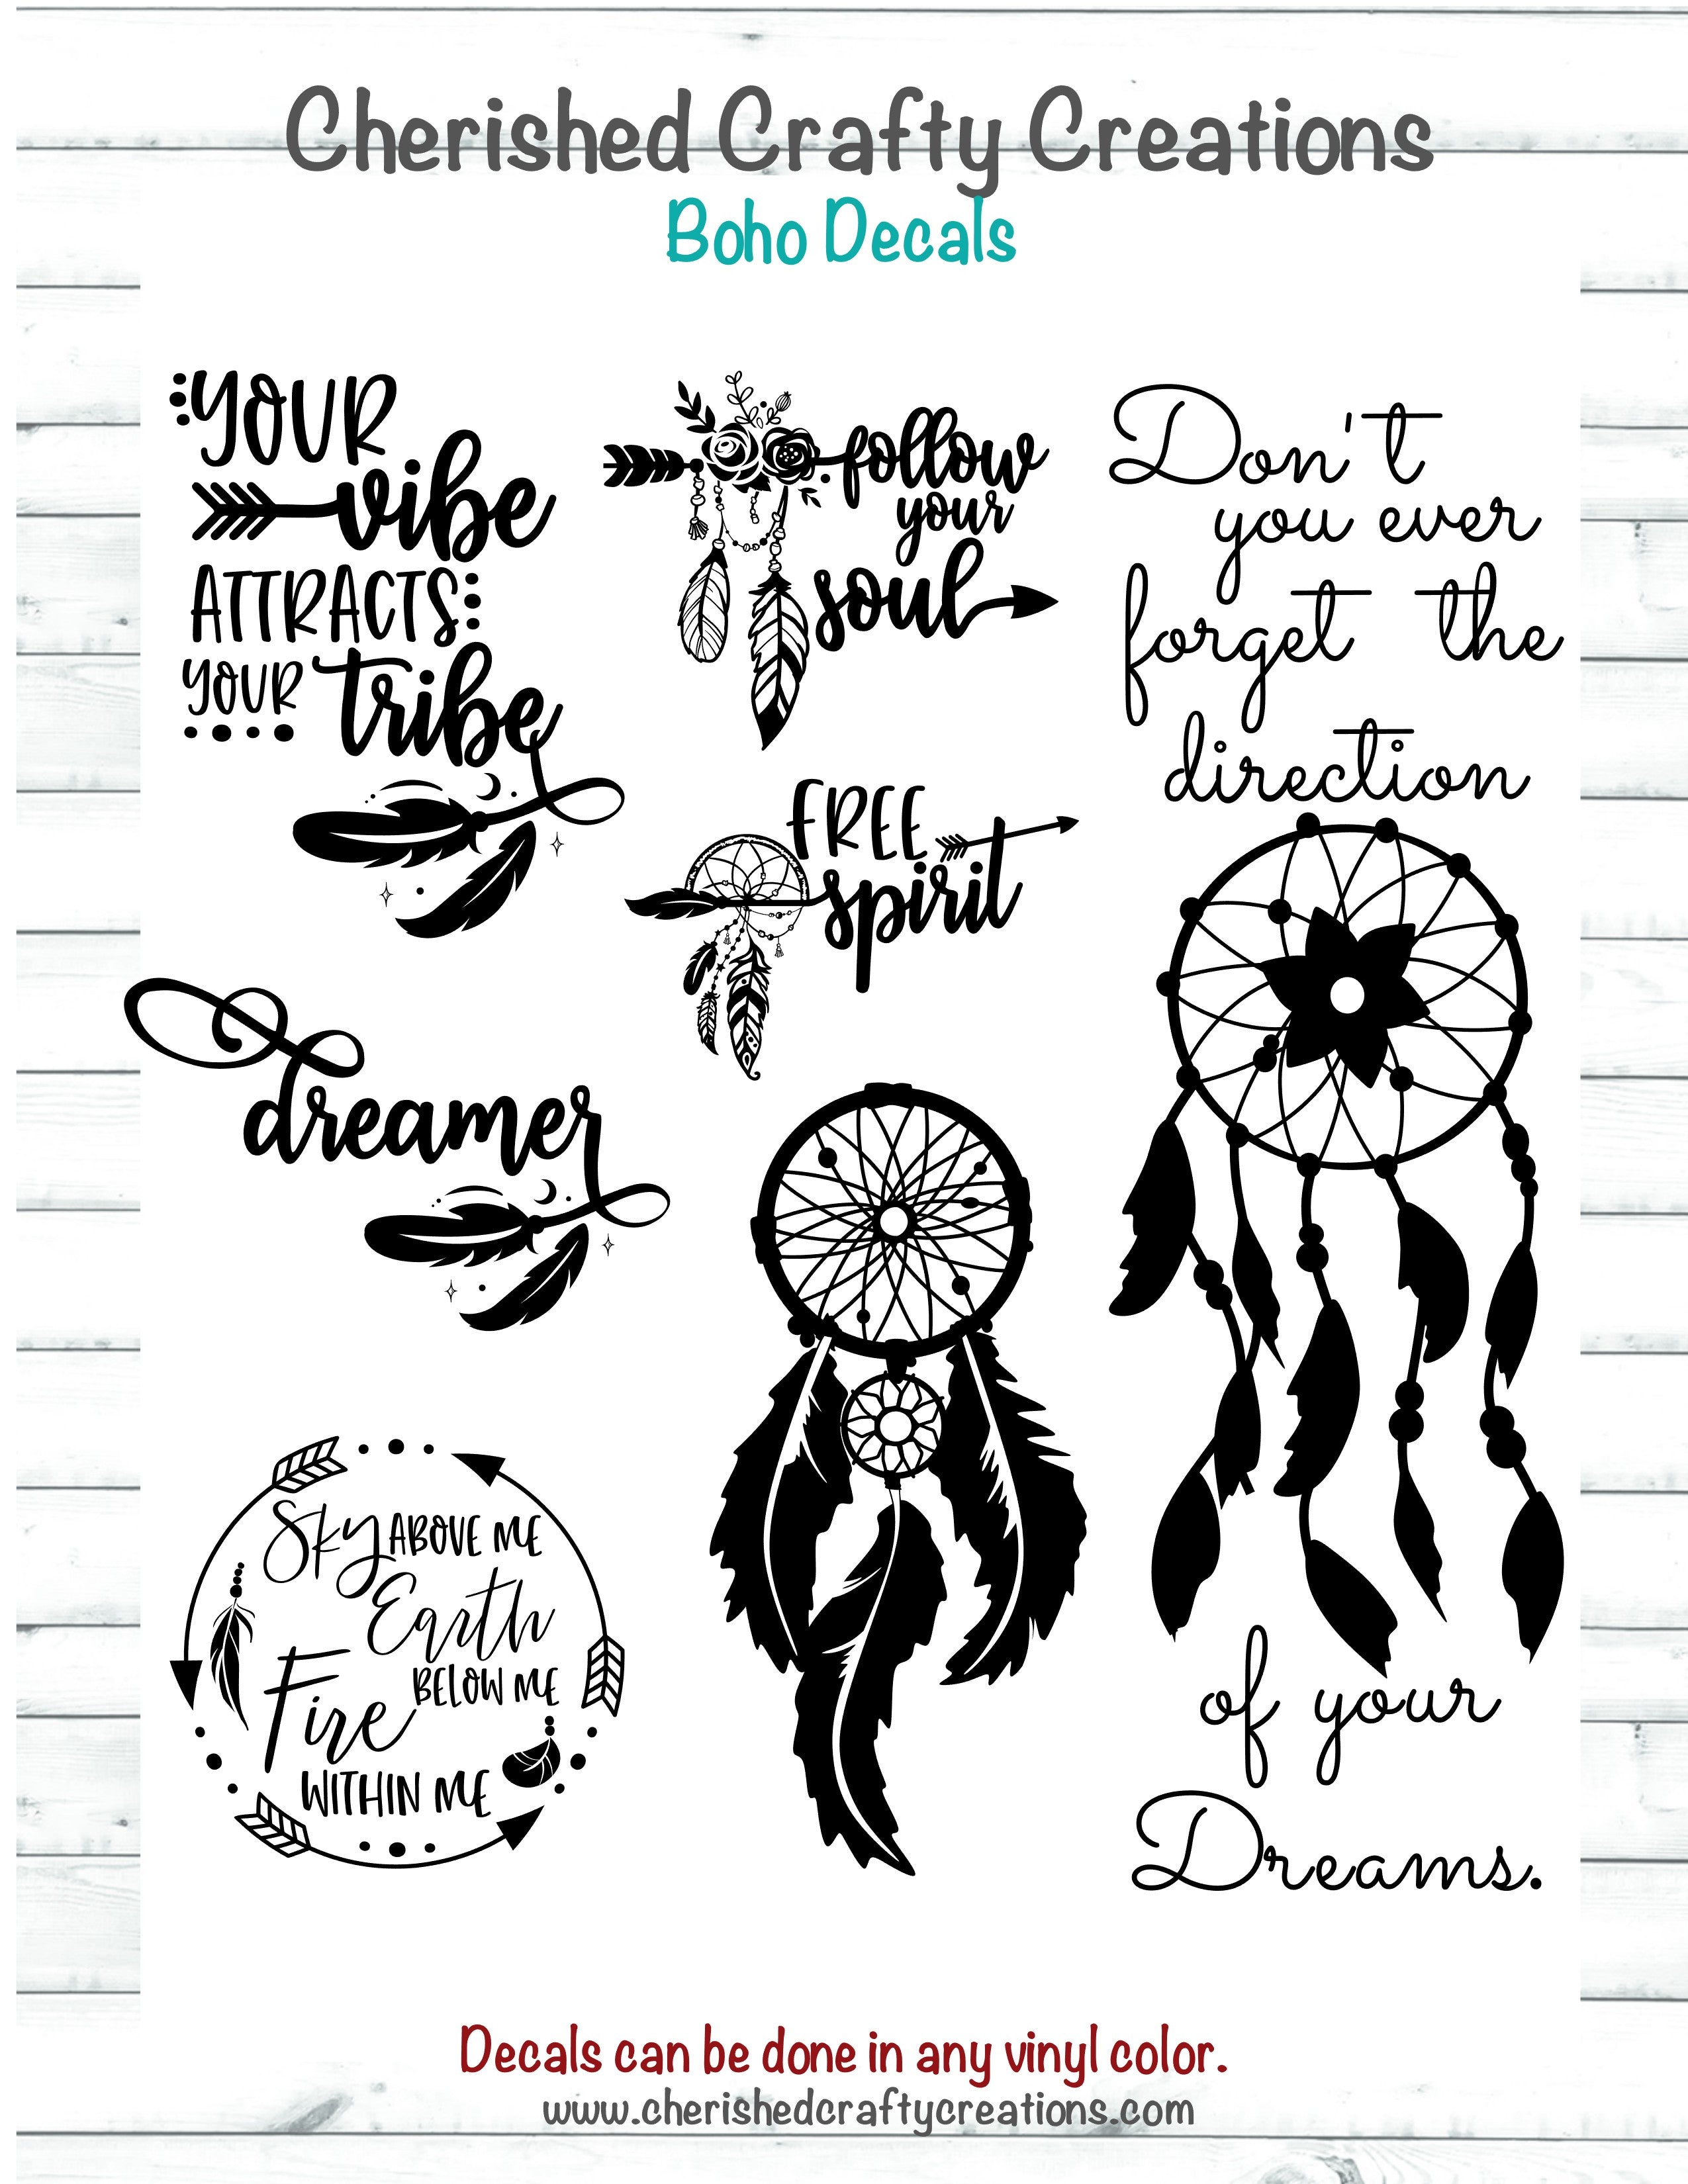 Cherished Crafty Creations
Boho Decals
YOUR
vibe
ATTRACTS
YOUR tribe
follow
your
soul
FREE
spirit
dreamer
Sky ABOVE ME
Earth
BELOW ME
Fire
WITHIN ME
Don't
you ever
forget the
direction
of your
Dreams.
Decals can be done in any vinyl color.
www.cherishedcraftycreations.com